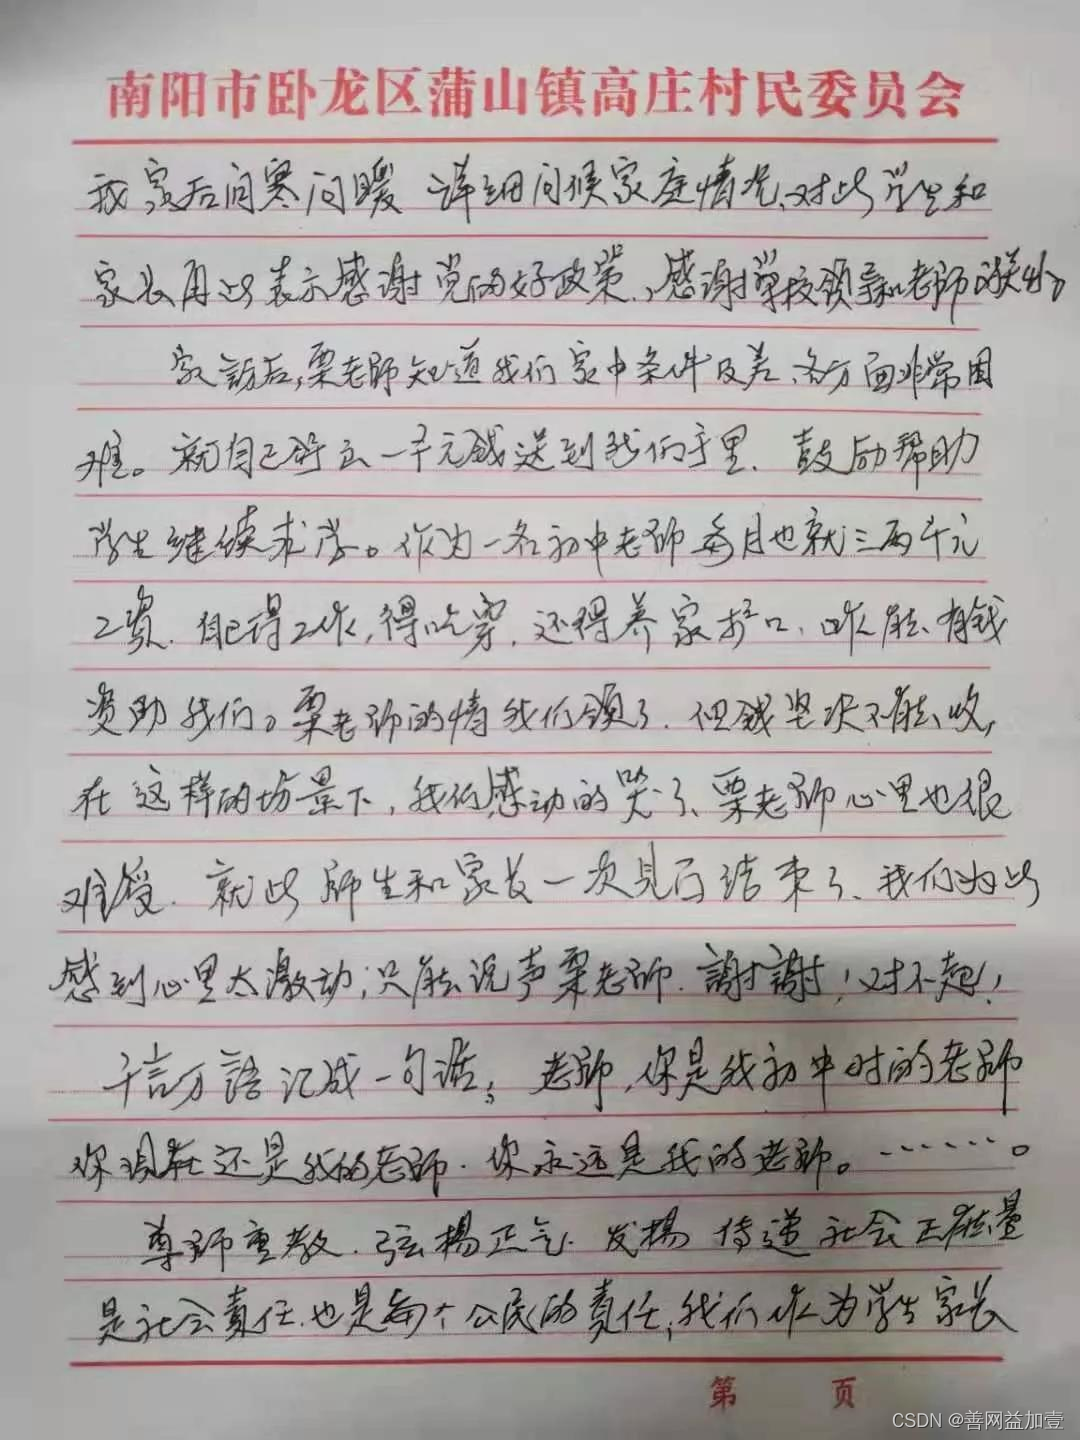 南阳市卧龙区蒲山镇高庄村民委员会
我家后问寒问暖 详细问候家庭情况、对此学生和
家长再此表示感谢党的好政策、感谢学校领导和老师
家訪后,栗老师知道我们家中条件及差、各方面非常困
难。就自己拿出一千元錢送到我们手里、鼓励帮助
学生继续求学。作为一名初中老师每月也就三两千元
工资、自己得工作,得吃穿、还得养家护口、咋能有钱
资助我们。栗老师的情我们领了、但錢坚决不能收,
在这样的场景下,我们感动的哭了、栗老师心里也很
难受、就此师生和家长一次見面结束了、我们为此
感到心里太激动;只能说声栗老师、謝謝!对不起!
千言万語汇成一句话; 老师,你是我初中时的老师
你現在还是我的老师、你永远是我的老师。……。
尊师重教、弦楊正气、发楊 传递社会正能量
是社会責任、也是每个公民的責任,我们作为学生家长
第 页
CSDN @善网益加壹